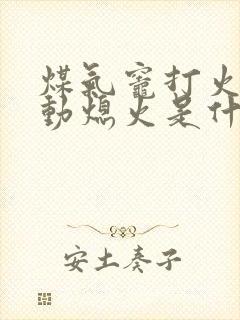 煤氣竈打火
動熄火是什
安土奏子